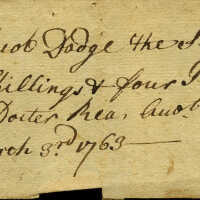 uob Dodge the S
hillings & four P
Docter Rea, Auot.
rch 3rd 1763